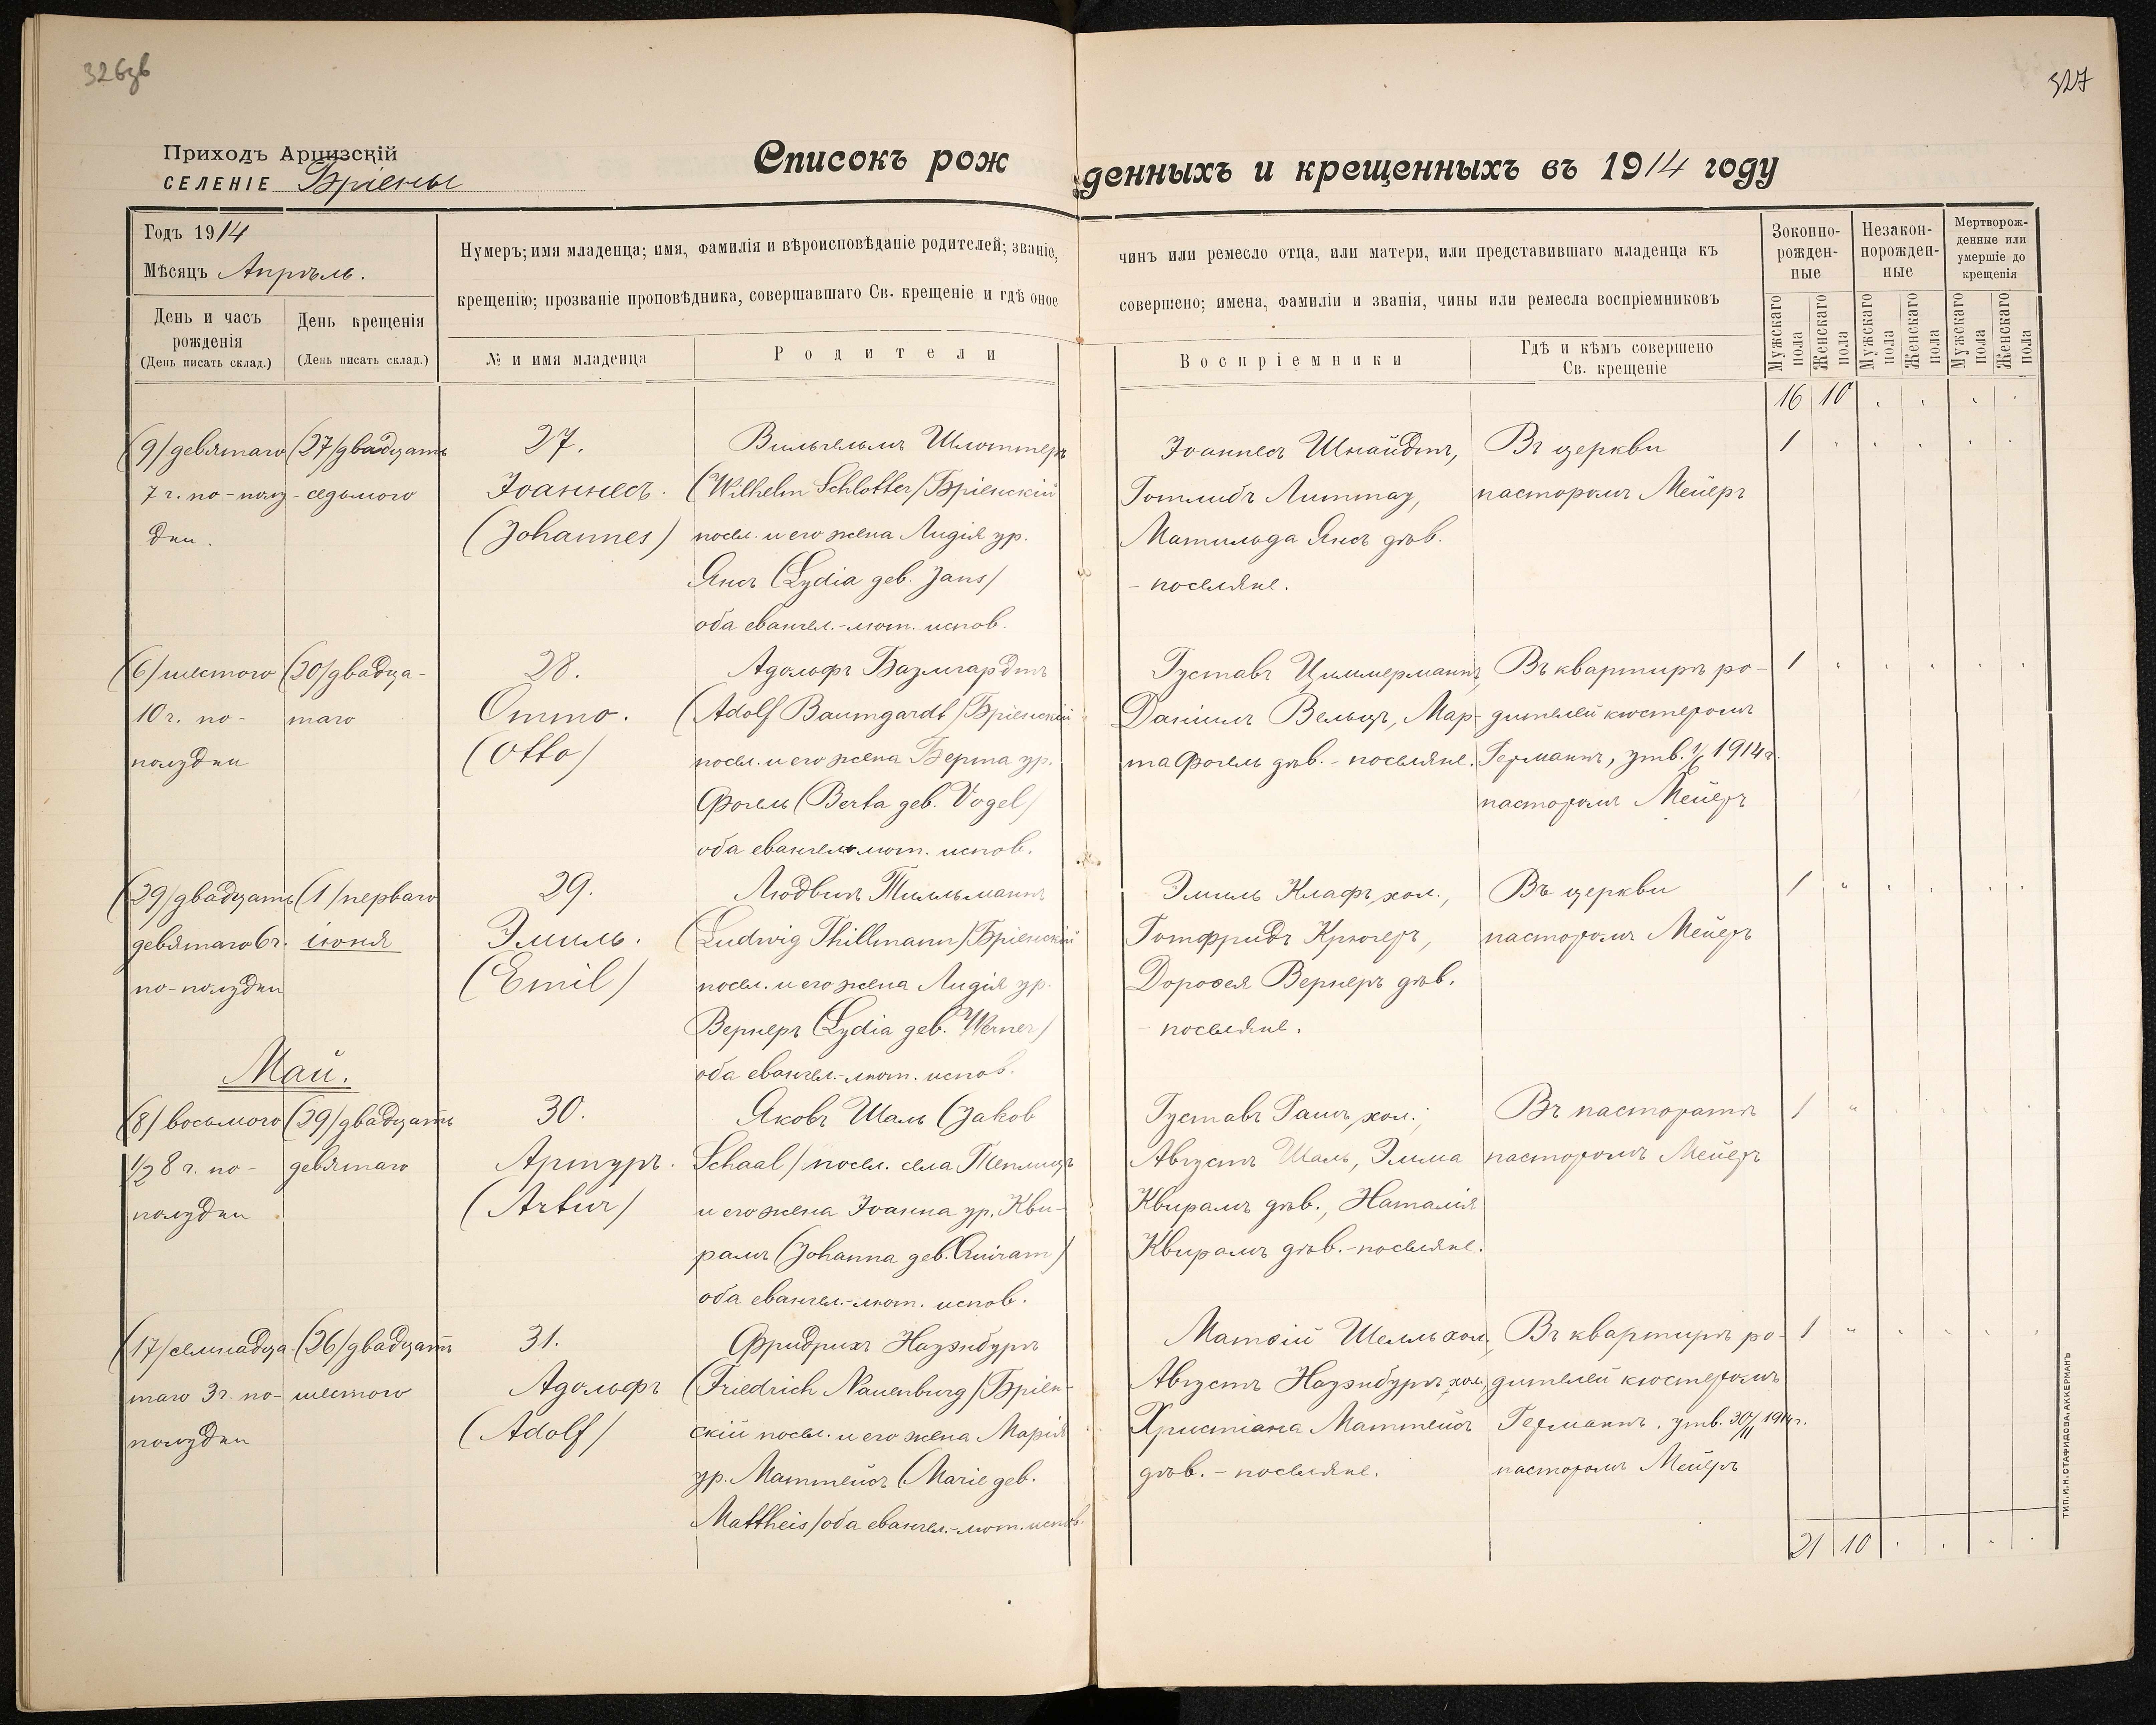 326зв
327
Приходъ Арцизскій
СЕЛЕНІЕ Бріены
Списокъ рожденныхъ и крещенныхъ въ 1914 году
Годъ 1914
Мѣсяцъ Апрѣль.
День и часъ рожденія
(День писать склад.)
День крещенія
(День писать склад.)
Нумеръ; имя младенца; имя, фамилія и вѣроисповѣданіе родителей; званіе,
крещенію; прозваніе проповѣдника, совершавшаго Св. крещеніе и гдѣ оное
№ и имя младенца
Родители
чинъ или ремесло отца, или матери, или представившаго младенца къ
совершено; имена, фамиліи и званія, чины или ремесла воспріемниковъ
Воспріемники
Гдѣ и кѣмъ совершено
Св. крещеніе
Зоконно-
рожден-
ные
Незакон-
норожден-
ные
Мертворож-
денные или
умершіе до
крещенія
Мужскаго пола
Женскаго пола
Мужскаго пола
Женскаго пола
Мужскаго пола
Женскаго пола
16 10 . . . .
(9/ девятаго
7 ч. по-полу-
дни.
(27/ двадцать
седьмого
27.
Іоаннесъ.
(Johannes)
Вильгельмъ Шлоттеръ
(Wilhelm Schlotter/ Бріенскій
посел. и его жена Лидія ур.
Янсъ (Lydia geb. Jans/
оба евангел.-лют. испов.
Іоаннесъ Шнайдтъ,
Готлибъ Литтау,
Матильда Янсъ дѣв.
- поселяне.
Въ церкви
пасторомъ Мейеръ
1 . . . . .
(6/ шестого
10 ч. по-
полудни
(20/ двадца-
таго
28.
Отто.
(Otto/
Адольфъ Баумгардтъ
(Adolf Baumgardt/ Бріенскій
посел. и его жена Берта ур.
Фогель (Berta geb. Vogel/
оба евангел.-лют. испов.
Густавъ Циммерманнъ,
Даніилъ Вельцъ, Мар-
та Фогель дѣв. - поселяне.
Въ квартирѣ ро-
дителей кюстеромъ
Германнъ, утв. 1914 г.
пасторомъ Мейеръ
1 . . . . .
(29/ двадцать
девятаго 6 ч.
по-полудни
(1/ перваго
іюня
29.
Эмиль.
(Emil/
Людвигъ Тилльманнъ
(Ludwig Thillmann/ Бріенскій
посел. и его жена Лидія ур.
Вернеръ (Lydia geb. Werner/
оба евангел.-лют. испов.
Эмиль Клафъ, хол.,
Готфридъ Крюгеръ,
Доротея Вернеръ дѣв.
- поселяне.
Въ церкви
пасторомъ Мейеръ
1 . . . . .
Май.
(8/ восьмого
1/2 8 ч. по-
полудни
(29/ двадцать
девятаго
30.
Артуръ.
(Artur/
Яковъ Шаль (Jakob
Schaal/ посел. села Теплицъ
и его жена Іоанна ур. Кви-
рамъ (Johanna geb. Quiram/
оба евангел.-лют. испов.
Густавъ Гашъ, хол.,
Августъ Шаль, Эмма
Квирамъ дѣв., Наталія
Квирамъ дѣв.-поселяне.
Въ пасторатѣ
пасторомъ Мейеръ
1 . . . . .
(17/ семнадца-
таго 3 ч. по-
полудни
(26/ двадцать
шестого
31.
Адольфъ
(Adolf/
Фридрихъ Науэнбургъ
(Friedrich Nauenburg/ Бріен-
скій посел. и его жена Марія
ур. Маттейсъ (Marie geb.
Mattheis/ оба евангел.-лют. испов.
Матѳій Шелль хол.,
Августъ Науэнбургъ, хол.,
Христіана Маттейсъ
дѣв. - поселяне.
Въ квартирѣ ро-
дителей кюстеромъ
Германнъ, утв. 1914 г.
пасторомъ Мейеръ
1 . . . . .
21 10 . . . .
ТИП. И.Н. СТАФИДОВА. АККЕРМАНЪ